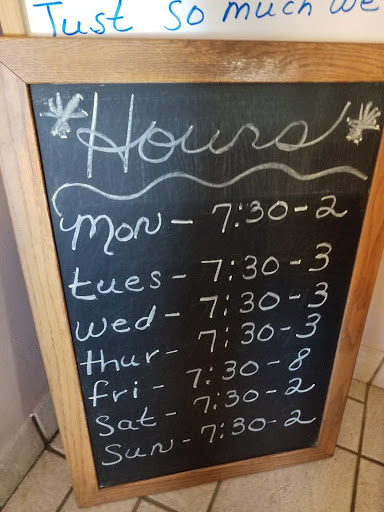 Just so much we
Hours
Mon - 7:30-2
tues - 7:30-3
wed - 7:30-3
thur - 7:30-3
fri - 7:30-8
Sat - 7:30-2
Sun - 7:30-2